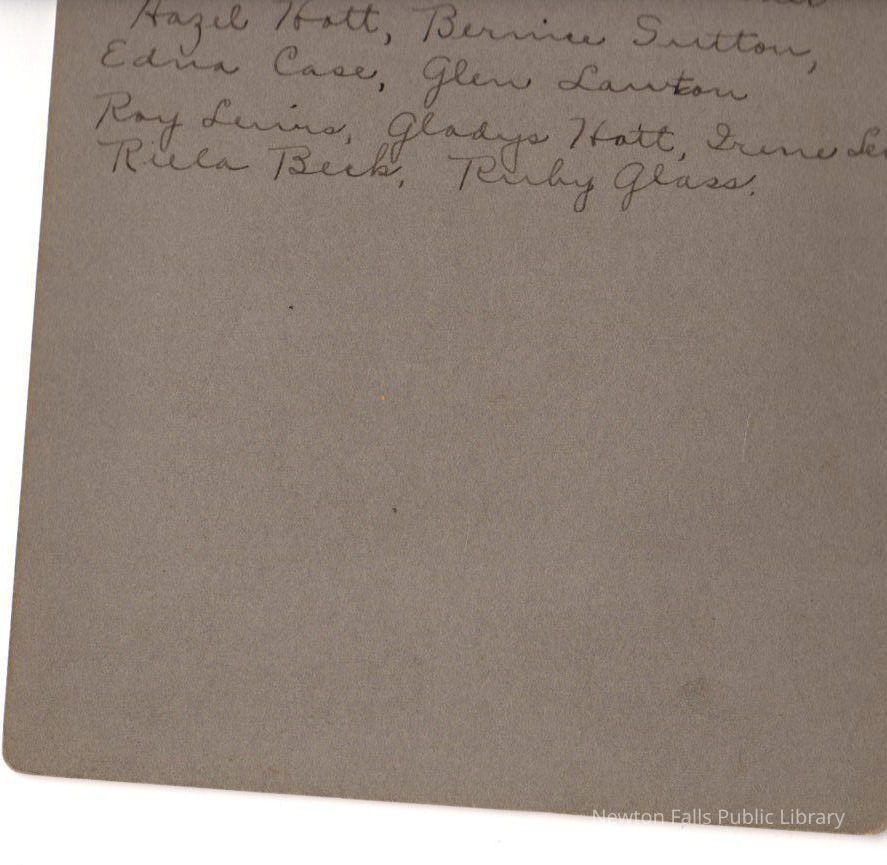 Hazel Hott, Bernice Sutton,
Edna Case, Glen Lawton
Roy Lewis, Gladys Hott, Irene
Beck, Ruby Glass.
Newton Falls Public Library